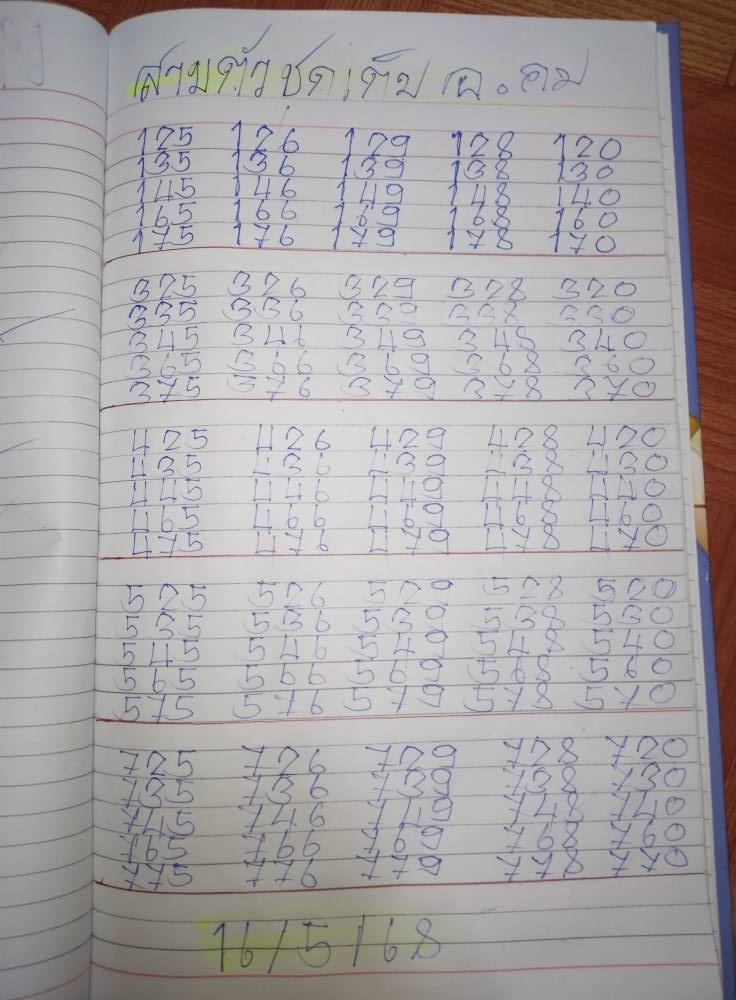 สามตัวชุดเต็ม อ.คม
125 126 129 128 120
135 136 139 138 130
145 146 149 148 140
165 166 169 168 160
175 176 179 178 170
325 326 329 328 320
335 336 339 338 330
345 346 349 348 340
365 366 369 368 360
375 376 379 378 370
425 426 429 428 420
435 436 439 438 430
445 446 449 448 440
465 466 469 468 460
475 476 479 478 470
525 526 529 528 520
535 536 539 538 530
545 546 549 548 540
565 566 569 568 560
575 576 579 578 570
725 726 729 728 720
735 736 739 738 730
745 746 749 748 740
765 766 769 768 760
775 776 779 778 770
16/5/68